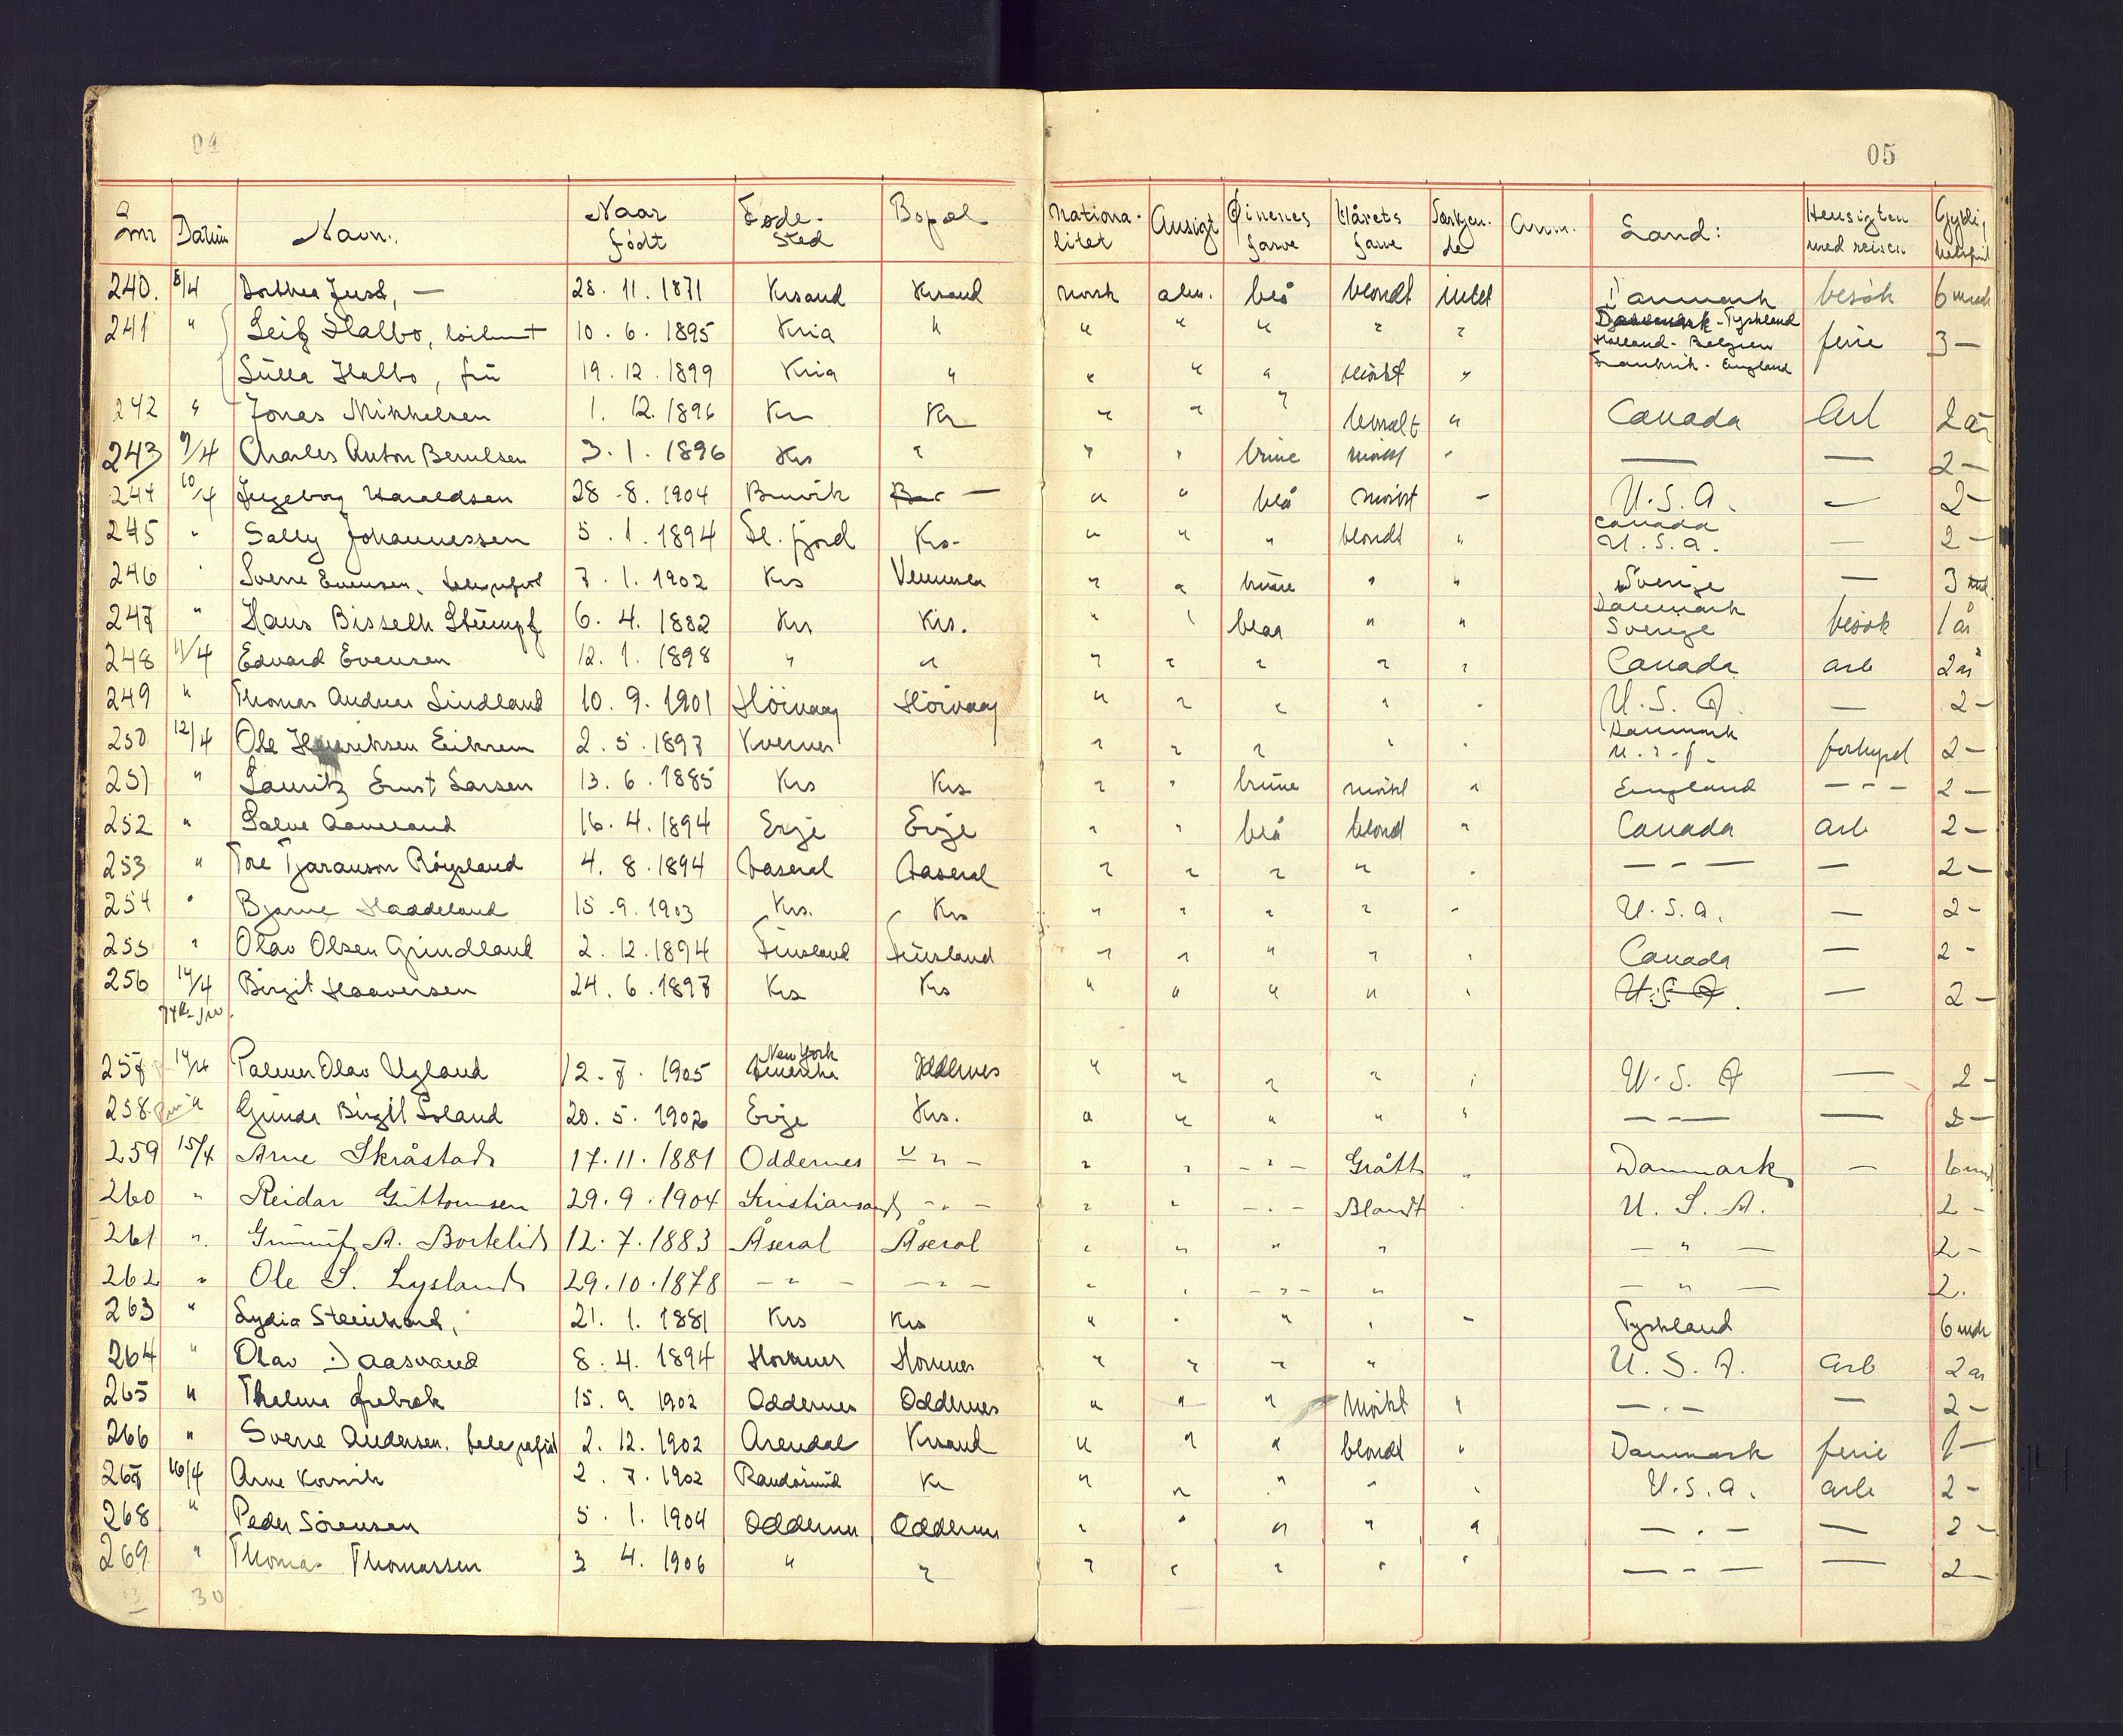 04 05
Lnr Datum Navn. Naar født Føde-sted Bopæl Nationa-litet Ansigt Øinenes farve Hårets farve Særkjen-de Anm. Land: Hensigten med reisen Gyldig-hetsfrist
240. 8/4 Dorthea Just, — 28. 11. 1871 Krsand Krsand norsk alm. blå blondt intet Danmark besøk 6 mndr
241 " Leif Halbo, 10. 6. 1895 Kria " " " " " " Danmark - Tyskland Holland - Belgien Frankrik - England ferie 3 —
Sulla Halbo, fru 19. 12. 1899 Kria " " " " mørkt "
242 " Jonas Mikkelsen 1. 12. 1896 Kr Kr " " " blondt " Canada Arb 2 år
243 9/4 Charles Anton Berulsen 3. 1. 1896 Krs " " " brune mørkt " — — 2 —
244 10/4 Ingeborg Haraldsen 28. 8. 1904 — " " blå mørkt - U.S.A. — 2 —
245 " Sally Johannessen 5. 1. 1894 Fl. fjord Krs- " " " blondt " Canada U.S.A. — 2 —
246 " Sverre Evensen, telegrafist 7. 1. 1902 Krs Vennesla " " brune " " Sverige — 3 md
247 " Hans Bisseth Stumpf 6. 4. 1882 Krs Krs. " " blaa " " Danmark Sverige besøk 1 år
248 11/4 Edvard Evensen 12. 1. 1898 " " " " " " " Canada arb 2 år
249 " Thomas Andreas Lindland 10. 9. 1901 Höivaag Höivaag " " " " " U.S.A. — 2 —
250 12/4 Ole Henriksen Eikrem 2. 5. 1897 Kvernes " " " " " Danmark forhyrt 2 —
251 " Lauritz Ernst Larsen 13. 6. 1885 Krs Krs " " brune mørkt " England - - - 2 —
252 " Salve Aaneland 16. 4. 1894 Evje Evje " " blå blond " Canada arb 2 —
253 " Tore Tjaranson Röysland 4. 8. 1894 Aaseral Aaseral " " " " " — - — — 2 —
254 " Bjarne Haddeland 15. 9. 1903 Krs. Krs " " " " " U.S.A. — 2 —
255 " Olav Olsen Grindland 2. 12. 1894 Finsland Finsland " " " " " Canada — 2 —
256 14/4 Birgit Haaversen 24. 6. 1897 Krs Krs " " " " " U.S.A. — 2 —
257 14/4 Palmer Olav Ugland 12. 7. 1905 New York Amerika Oddernes " " " " " U.S.A — 2 —
258 " Gunda Birgit Soland 20. 5. 1902 Evje Krs. " " " " " — — — 2 —
259 15/4 Arne Skråstad 17. 11. 1881 Oddernes — " — " " - " - Grått " Danmark — 6 mnd.
260 " Reidar Guttormsen 29. 9. 1904 Kristiansand - " - " " - " - Blondt " U.S.A. 2 -
261 " A. Bortelid 12. 7. 1883 Åseral Åseral " " " " — " — 2 -
262 " Ole S. Lysland 29. 10. 1878 — " — — " — " " - " - " — " — 2.
263 " Lydia 21. 1. 1881 Krs Krs " " " " - Tyskland 6 mdr
264 " Olav Daasvand 8. 4. 1894 Hornnes Hornnes " " " " U.S.A. Arb 2 år
265 " Thelma 15. 9. 1902 Oddernes Oddernes " " " Mørkt " — " — — 2 —
266 " Sverre Andersen. telegrafist 2. 12. 1902 Arendal Krsand " " " blondt " Danmark ferie 1 —
267 16/4 Arne Korsvik 2. 7. 1902 Randøsund Kr " " " " " U.S.A. arb 2 —
268 " Peder Sörensen 5. 1. 1904 Oddernes Oddernes " " " " " — " — — 2 —
269 " Thomas Thomassen 3. 4. 1906 " " " " " " " — " — — 2 —
13 30